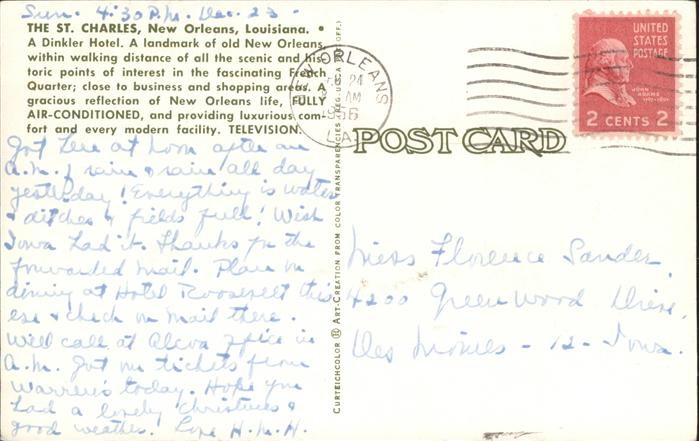 Sun. 4:30 P.M. Dec. 23 -
THE ST. CHARLES, New Orleans, Louisiana. •
A Dinkler Hotel. A landmark of old New Orleans
within walking distance of all the scenic and his-
toric points of interest in the fascinating French
Quarter; close to business and shopping areas. A
gracious reflection of New Orleans life, FULLY
AIR-CONDITIONED, and providing luxurious com-
fort and every modern facility. TELEVISION.
Got here at noon after an
A.M. of rain & rain all day
yesterday! Everything is water
& ditches & fields full! Wish
Iowa had it. Thanks for the
forwarded mail. Plan on
dining at Hotel Roosevelt this
eve & check on mail there.
Will call at Alcoa office in
A.M. Got our tickets from
Warren's today. Hope you
had a lovely Christmas &
good weather! Love H.M.H.
CURTEICHCOLOR ® ART-CREATION FROM COLOR TRANSPARENCIES REG. U.S.A. PAT. OFF.)
NEW ORLEANS
DEC 24
AM
1956
LA
POST CARD
UNITED
STATES
POSTAGE
JOHN
ADAMS
1797-1801
2 CENTS 2
Miss Florence Sander
4200 Greenwood Drive,
Des Moines - 12 - Iowa.